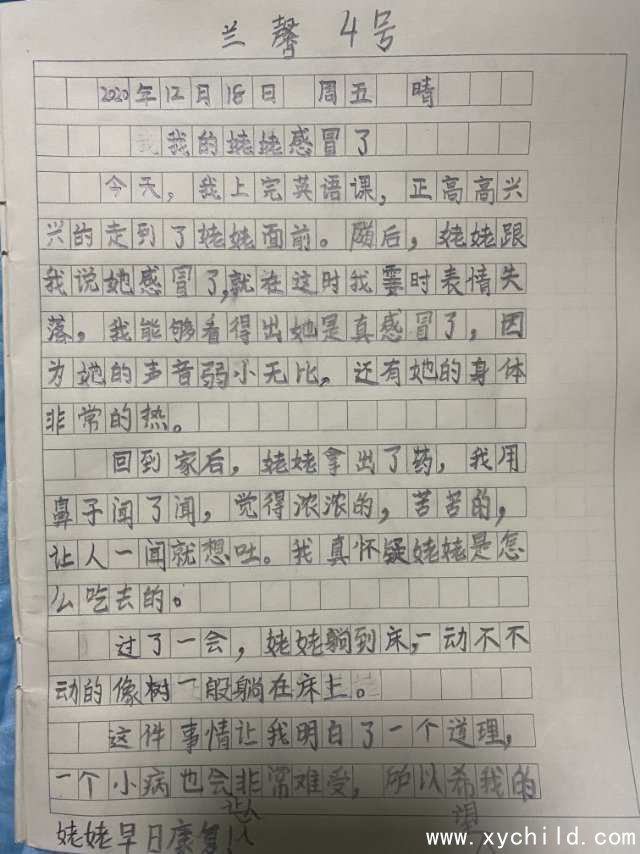 兰馨 4号
2020年12月18日 周五 晴
我的姥姥感冒了
今天，我上完英语课，正高高兴
兴的走到了姥姥面前。随后，姥姥跟
我说她感冒了，就在这时我霎时表情失
落，我能够看得出她是真感冒了，因
为她的声音弱小无比，还有她的身体
非常的热。
回到家后，姥姥拿出了药，我用
鼻子闻了闻，觉得浓浓的，苦苦的，
让人一闻就想吐。我真怀疑姥姥是怎
么吃去的。
过了一会，姥姥躺到床，一动不不
动的像树一般躺在床上。
这件事情让我明白了一个道理，
一个小病也会让人非常难受，所以希望我的
姥姥早日康复！
www.xychild.com